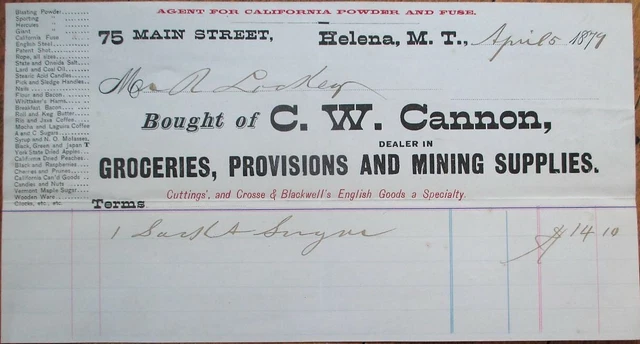 AGENT FOR CALIFORNIA POWDER AND FUSE.
Blasting Powder
Sporting "
Hercules "
Giant "
California Fuse
English Steel
Patent Shot
Rope, all sizes
State and Oneida Salt
Lard and Coal Oil
Stearic Acid Candles
Pick and Sledge Handles
Nails
Flour and Bacon
Whittaker's Hams
Breakfast Bacon
Roll and Keg Butter
Rio and Java Coffee
Mocha and Laguira Coffee
A and C Sugars
Syrup and N. O. Molasses
Black, Green and Japan T
York State Dried Apples
California Dried Peaches
Black and Raspberries
Cherries and Prunes
California Can'd Goods
Candies and Nuts
Vermont Maple Sugar
Wooden Ware
Clocks, etc., etc.
75 MAIN STREET, Helena, M. T., April 5 1879
M R Lockey
Bought of C. W. Cannon,
DEALER IN
GROCERIES, PROVISIONS AND MINING SUPPLIES.
Cuttings', and Crosse & Blackwell's English Goods a Specialty.
Terms
1 Sack A Sugar $14 10